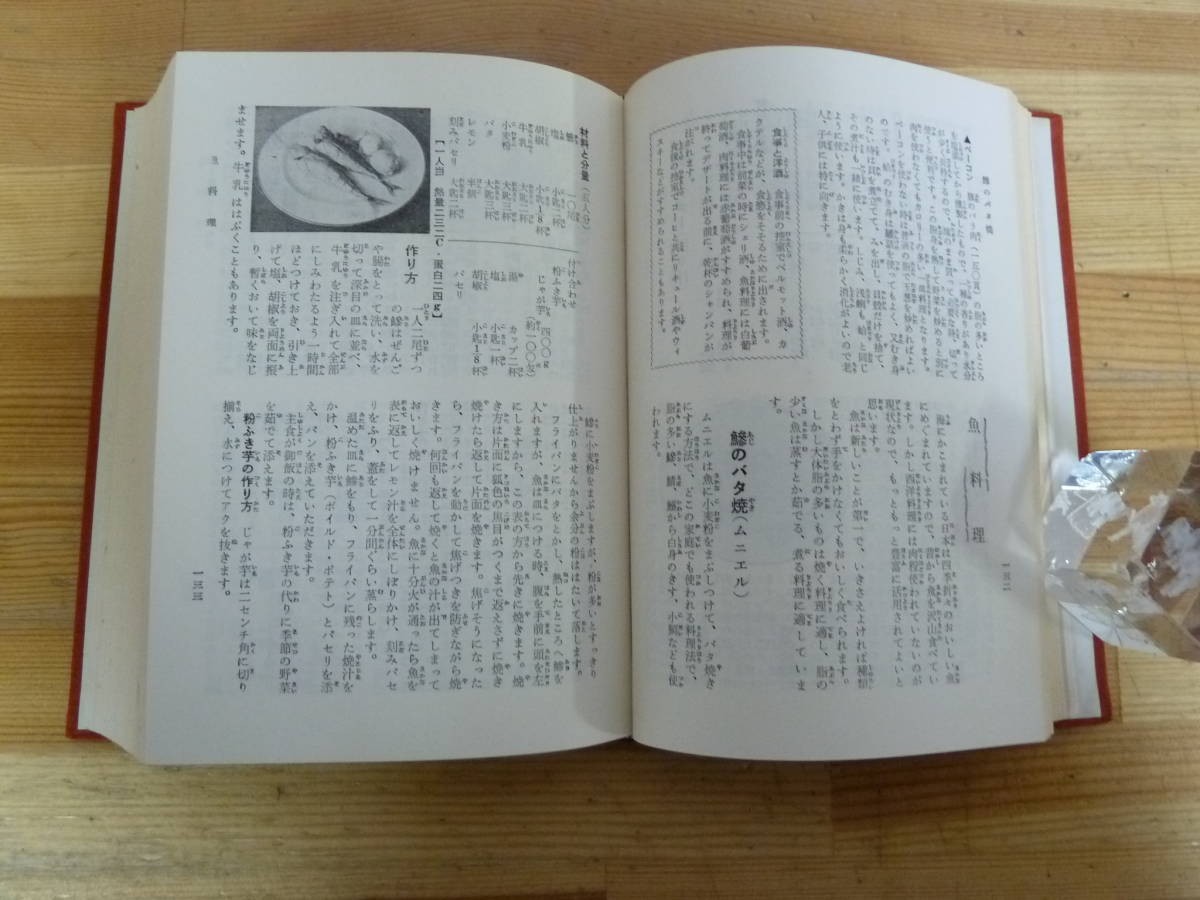 鯵のバタ焼
▲ベーコン
食事と洋酒
食事前の控室でベルモット酒、カ
クテルなどが、食慾をそそるために出されます。
食事中は前菜の時にシェリ酒、魚料理には白
葡萄酒、肉料理には赤葡萄酒がすすめられ、料理が
終ってデザートが出る前に、乾杯のシャンパンが
注がれます。
食後の控室でコーヒと共にリキュール酒やウィ
スキーなどがすすめられることもあります。
魚料理
海にかこまれている日本は四季折々のおいしい魚
にめぐまれていますので、昔から魚を沢山食べてい
ます。しかし西洋料理には肉程使われていないのが
現状なので、もっともっと豊富に活用されてよいと
思います。
魚は新しいことが第一で、いきさえよければ種類
をとわず手をかけなくてもおいしく食べられます。
しかし大体脂の多いものは焼く料理に適し、脂の
少い魚は蒸すとか茹でる、煮る料理に適していま
す。
鯵のバタ焼(ムニエル)
ムニエルは魚に小麦粉をまぶしつけて、バタ焼き
にする方法で、どこの家庭でも使われる料理法で、
脂の多い鯵、鯖、鰮から白身のきす、小鯛なども使
われます。
一三二
材料と分量(五人分)
鯵 一〇尾
塩 小匙1.8杯
胡椒
牛乳 大匙三杯
小麦粉 大匙三杯
バタ 大匙三杯
レモン 半個
刻みパセリ 大匙一杯
付け合わせ
粉ふき芋
じゃが芋 四〇〇g
(約一〇〇匁)
湯 カップ二杯
塩 小匙一杯
胡椒 小匙1.8杯
パセリ
[一人当 熱量二三二C・蛋白二四g]
作り方
一人二尾ずつ
の鯵はぜんご
や腸をとって洗い、水を
切って深目の皿に並べ、
牛乳を注ぎ入れて全部
にしみわたるよう一時間
ほどつけておき、引き上
げて塩、胡椒を両面に振
り、暫くおいて味をなじ
ませます。牛乳ははぶくこともあります。
鯵に小麦粉をまぶしますが、粉が多いとすっきり
仕上がりませんから余分の粉ははたいて落します。
フライパンにバタをとかし、熱したところへ鯵を
入れますが、魚は皿につける時、腹を手前に頭を左
にしますから、この表の方から先きに焼きます。焼
き方は片面に狐色の焦目がつくまで返えさずに焼き
焼けたら返して片面を焼きます。焦げそうになった
ら、フライパンを動かして焦げつきを防ぎながら焼
きます。何回も返して焼くと魚の汁が出てしまって
おいしく焼けません。魚に十分火が通ったら魚を
表に返してレモン汁を全体にしぼりかけ、刻みパセ
リをふり、蓋をして一分間ぐらい蒸らします。
温めた皿に鯵をもり、フライパンに残った焼汁を
かけ、粉ふき芋(ボイルド・ポテト)とパセリを添
え、パンを添えていただきます。
主食が御飯の時は、粉ふき芋の代りに季節の野菜
を茹でて添えます。
粉ふき芋の作り方 じゃが芋は二センチ角に切り
揃え、水につけてアクを抜きます。
魚料理
一三三